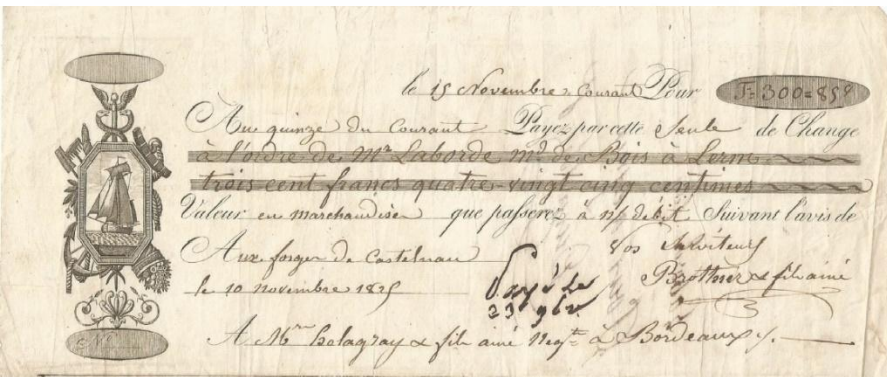 le 15 Novembre Courant Pour F= 300=85c
Au quinze du Courant Payez par cette Seule de Change
à l'ordre de Mr Laborde Md de Bois à Lerm
trois cent francs quatre-vingt cinq centimes
Valeur en marchandise que passerez à n/ debit Suivant l'avis de
Aux forges de Castelnau Vos Serviteurs
le 10 Novembre 1825 fils ainé
23 9bre
A Mrs & fils ainé Negts à Bordeaux